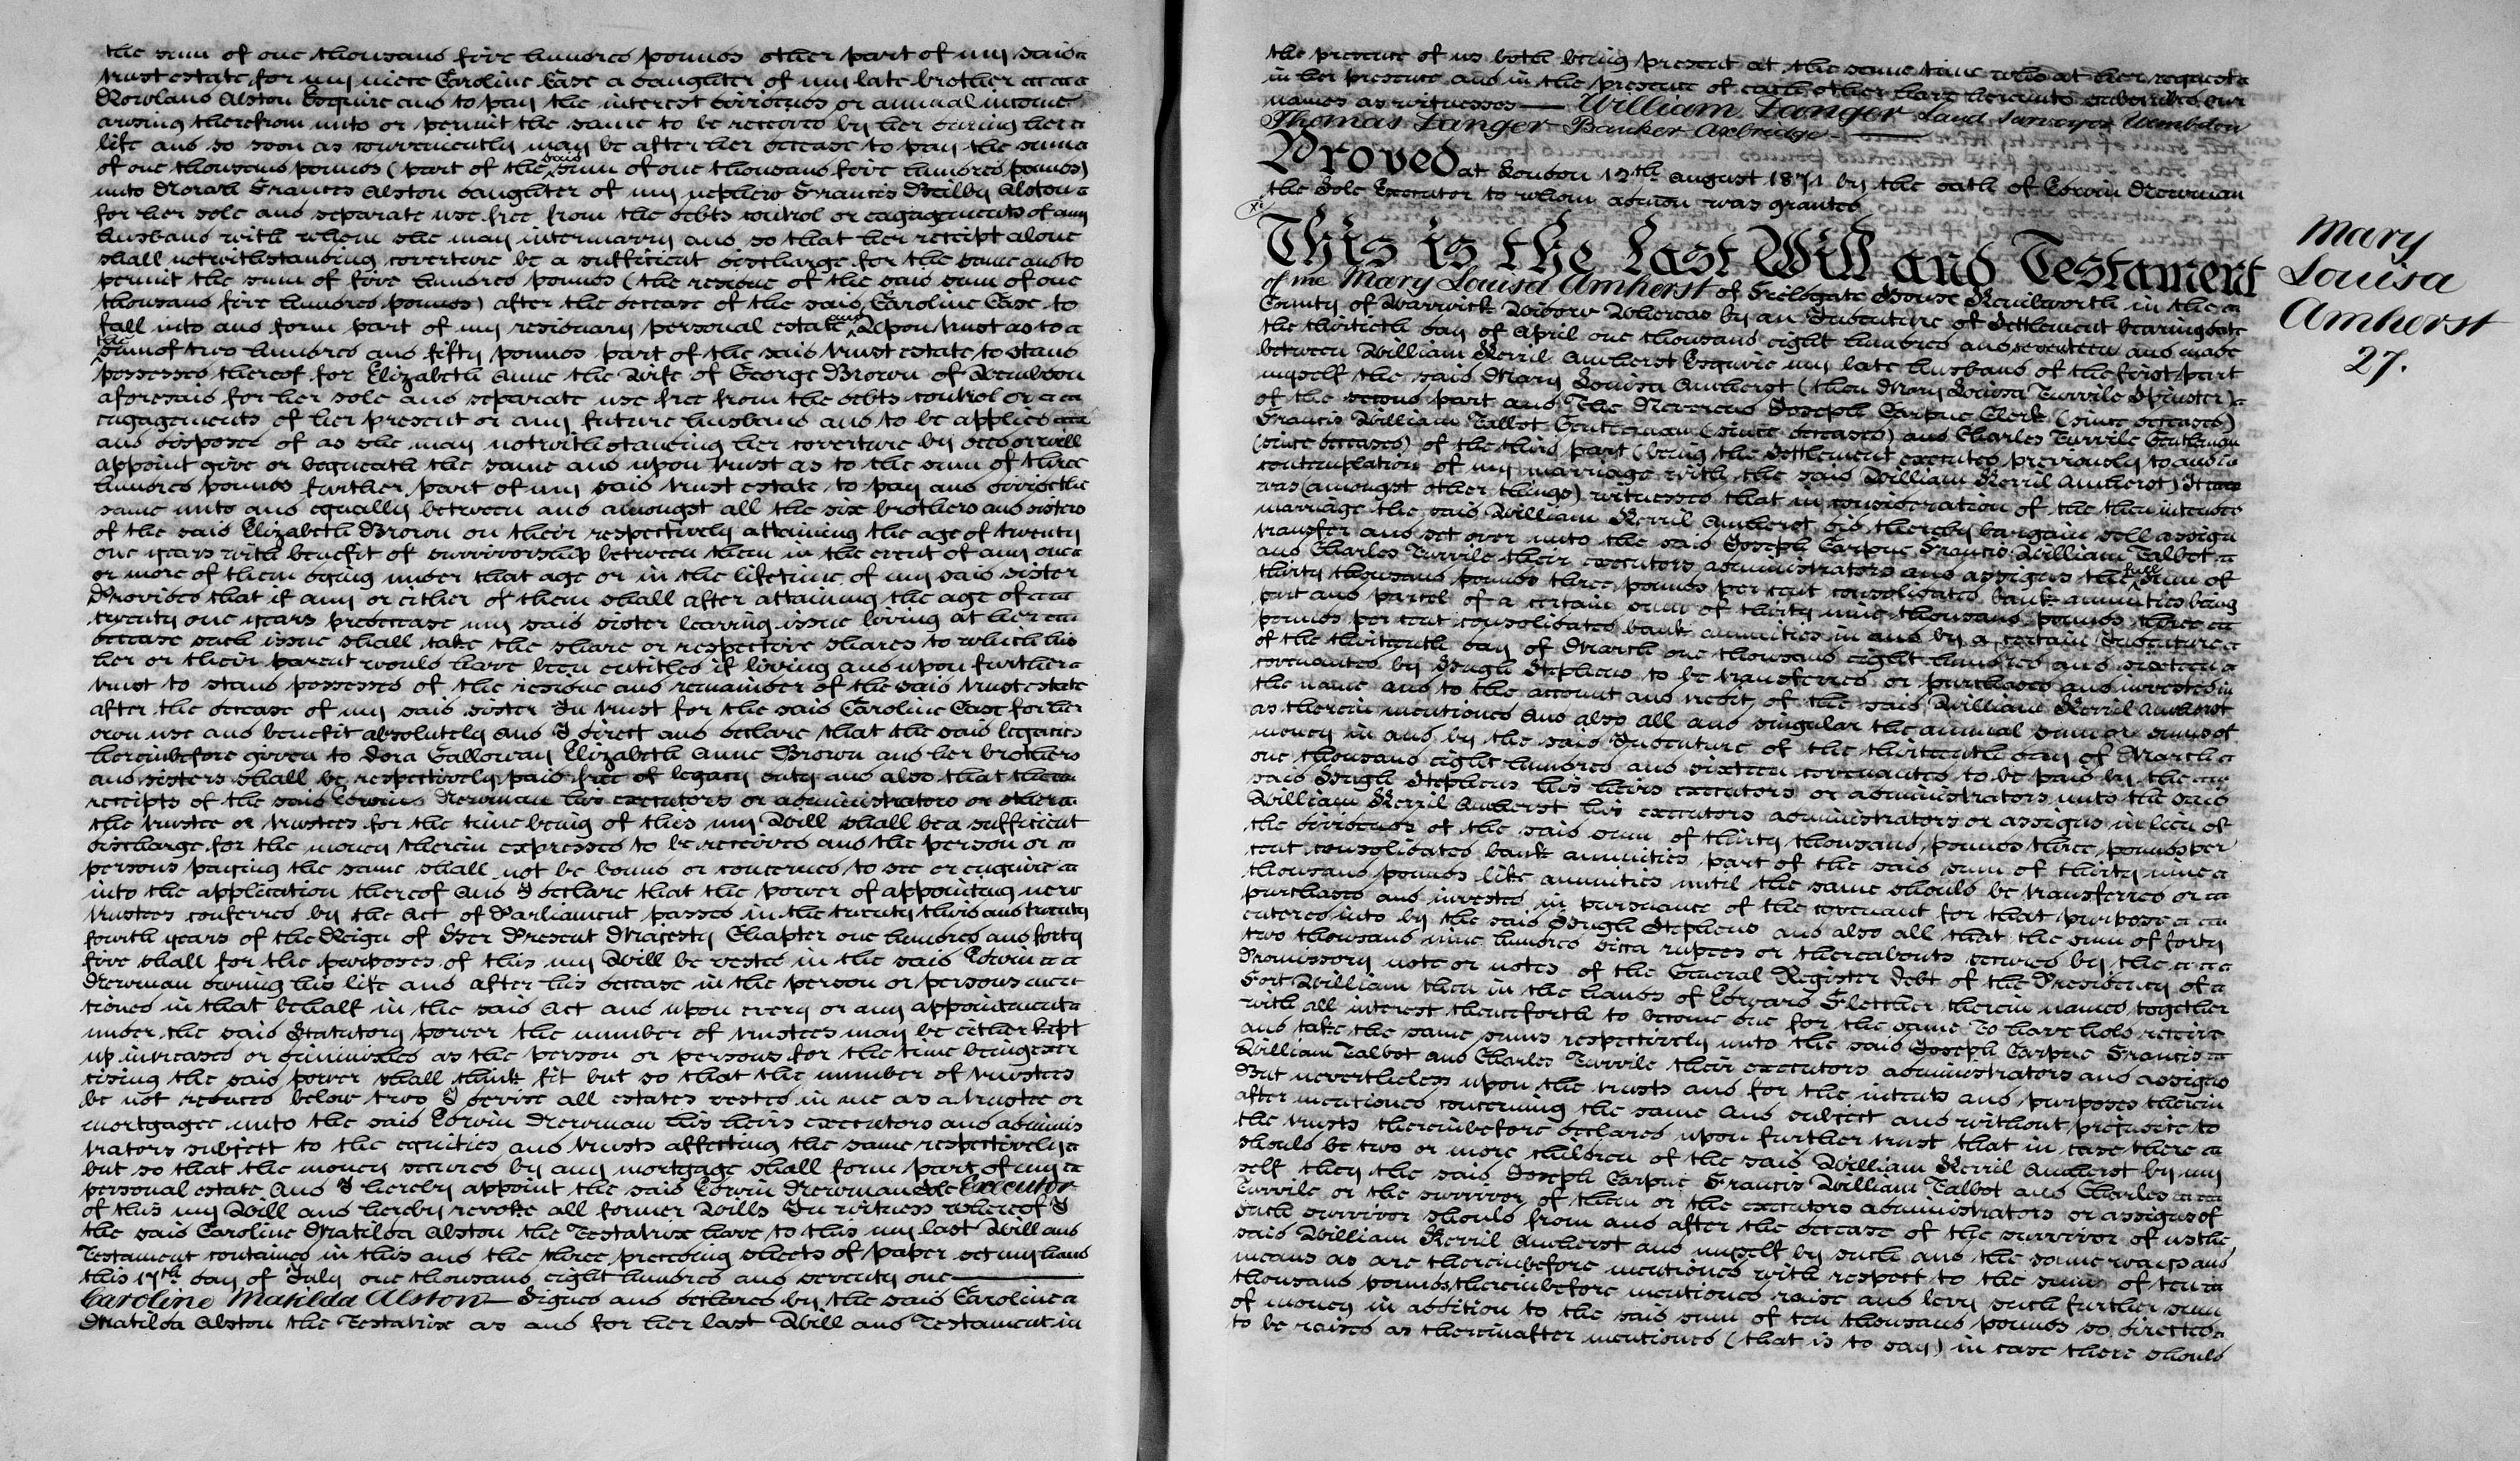 the sum of one thousand five hundred pounds other part of my said
trust estate for my niece Caroline Case a daughter of my late brother
Rowland Alston Esquire and to pay the interest dividends or annual income
arising therefrom unto or permit the same to be received by her during her
life and so soon as conveniently may be after her decease to pay the sum
of one thousand pounds (part of the said sum of one thousand five hundred pounds)
unto Norah Frances Alston daughter of my nephew Francis Beilby Alston
for her sole and separate use free from the debts control or engagements of any
husband with whom she may intermarry and so that her receipt alone
shall notwithstanding coverture be a sufficient discharge for the same and to
permit the sum of five hundred pounds (the residue of the said sum of one
thousand five hundred pounds) after the decease of the said Caroline Case to
fall into and form part of my residuary personal estate and Upon trust as to a
the sum of two hundred and fifty pounds part of the said trust estate to stand
possessed thereof for Elizabeth Anne the Wife of George Brown of Wembdon
aforesaid for her sole and separate use free from the debts control or
engagements of her present or any future husband and to be applied
and disposed of as she may notwithstanding her coverture by deed or will
appoint give or bequeath the same and upon trust as to the sum of three
hundred pounds further part of my said trust estate to pay and divide the
same unto and equally between and amongst all the six brothers and sisters
of the said Elizabeth Brown on their respectively attaining the age of twenty
one years with benefit of survivorship between them in the event of any one
or more of them dying under that age or in the lifetime of my said sister
Provided that if any or either of them shall after attaining the age of
twenty one years predecease my said sister leaving issue living at her
decease such issue shall take the share or respective shares to which his
her or their parent would have been entitled if living and upon further
trust to stand possessed of the residue and remainder of the said trust estate
after the decease of my said sister In trust for the said Caroline Case for her
own use and benefit absolutely And I direct and declare that the said legacies
hereinbefore given to Dora Galloway Elizabeth Anne Brown and her brothers
and sisters shall be respectively paid free of legacy duty and also that the
receipts of the said Edwin Newman his executors or administrators or other
the trustee or trustees for the time being of this my Will shall be a sufficient
discharge for the money therein expressed to be received and the person or
persons paying the same shall not be bound or concerned to see or enquire
into the application thereof And I declare that the power of appointing new
trustees conferred by the Act of Parliament passed in the twenty third and twenty
fourth years of the Reign of Her Present Majesty Chapter one hundred and forty
five shall for the purposes of this my Will be vested in the said Edwin
Newman during his life and after his decease in the person or persons men
tioned in that behalf in the said Act and upon every or any appointment
under the said Statutory power the number of trustees may be either kept
up increased or diminished as the person or persons for the time being exer
cising the said power shall think fit but so that the number of trustees
be not reduced below two I devise all estates vested in me as a trustee or
mortgagee unto the said Edwin Newman his heirs executors and adminis
trators subject to the equities and trusts affecting the same respectively
but so that the money secured by any mortgage shall form part of my
personal estate And I hereby appoint the said Edwin Newman sole Executor
of this my Will and hereby revoke all former Wills In witness whereof I
the said Caroline Matilda Alston the Testatrix have to this my last Will and
Testament contained in this and the three preceding sheets of paper set my hand
this 17th day of July one thousand eight hundred and seventy one
Caroline Matilda Alston – Signed and declared by the said Caroline
Matilda Alston the Testatrix as and for her last Will and Testament in
the presence of us both being present at the same time who at her request
in her presence and in the presence of each other have hereunto subscribed our
names as witnesses – William Sanger Land Surveyor Wembdon
Thomas Sanger Banker Axbridge
Proved at London 12th August 1871 by the oath of Edwin Newman
the Sole Executor to whom admon was granted
This is the Last Will and Testament
of me Mary Louisa Amherst of Fieldgate House Kenilworth in the
County of Warwick Widow Whereas by an Indenture of Settlement bearing date
the thirtieth day of April one thousand eight hundred and seventeen and made
between William Kerril Amherst Esquire my late husband of the first part
myself the said Mary Louisa Amherst (then Mary Louisa Turvile Spinster)
of the second part and The Reverend Joseph Carpue Clerk (since deceased)
Francis William Talbot Gentleman (since deceased) and Charles Turvile Gentleman
(since deceased) of the third part (being the Settlement executed previously to and in
contemplation of my marriage with the said William Kerril Amherst) It
was (amongst other things) witnessed that in consideration of the then intended
marriage the said William Kerril Amherst did thereby bargain sell assign
transfer and set over unto the said Joseph Carpue Francis William Talbot
and Charles Turvile their executors administrators and assigns the full sum of
thirty thousand pounds three pounds per cent consolidated bank annuities being
part and parcel of a certain sum of thirty nine thousand pounds three
pounds per cent consolidated bank annuities in and by a certain Indenture
of the thirteenth day of March one thousand eight hundred and sixteen
covenanted by Hugh Stephens to be transferred or purchased and invested in
the name and to the account and credit of the said William Kerril Amherst
as therein mentioned And also all and singular the annual sum or sums of
money in and by the said Indenture of the thirteenth day of March
one thousand eight hundred and sixteen covenanted to be paid by the
said Hugh Stephens his heirs executors or administrators unto the said
William Kerril Amherst his executors administrators or assigns in lieu of
the dividends of the said sum of thirty thousand pounds three pounds per
cent consolidated bank annuities part of the said sum of thirty nine
thousand pounds like annuities until the same should be transferred or
purchased and invested in pursuance of the covenant for that purpose
entered into by the said Hugh Stephens and also all that the sum of forty
two thousand nine hundred sicca rupees or thereabouts secured by the
Promissory note or notes of the General Register Debt of the Presidency of
Fort William then in the hands of Edward Fletcher therein named together
with all interest thenceforth to become due for the same To have hold receive
and take the same sums respectively unto the said Joseph Carpue Francis
William Talbot and Charles Turvile their executors administrators and assigns
But nevertheless upon the trusts and for the intents and purposes therein
after mentioned concerning the same And subject and without prejudice to
the trusts thereinbefore declared upon further trust that in case there
should be two or more children of the said William Kerril Amherst by my
self they the said Joseph Carpue Francis William Talbot and Charles
Turvile or the survivor of them or the executors administrators or assigns of
such survivor should from and after the decease of the survivor of us the
said William Kerril Amherst and myself by such and the same ways and
means as are thereinbefore mentioned with respect to the sum of ten
thousand pounds thereinbefore mentioned raise and levy such further sum
of money in addition to the said sum of ten thousand pounds so directed
to be raised as thereinafter mentioned (that is to say) in case there should
Mary
Louisa
Amherst
27.